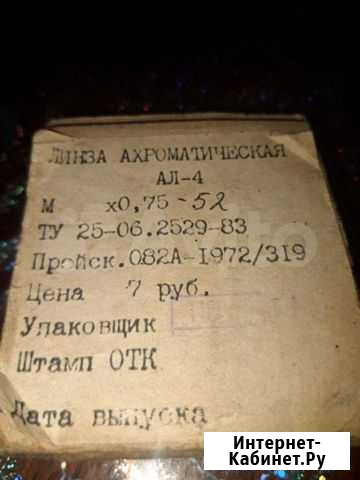 ЛИНЗА АХРОМАТИЧЕСКАЯ
АЛ-4
М х0,75-52
ТУ 25-06.2529-83
Прейск.082А-1972/319
Цена 7 руб.
Упаковщик
Штамп ОТК
Дата выпуска
Интернет-
Кабинет.Ру